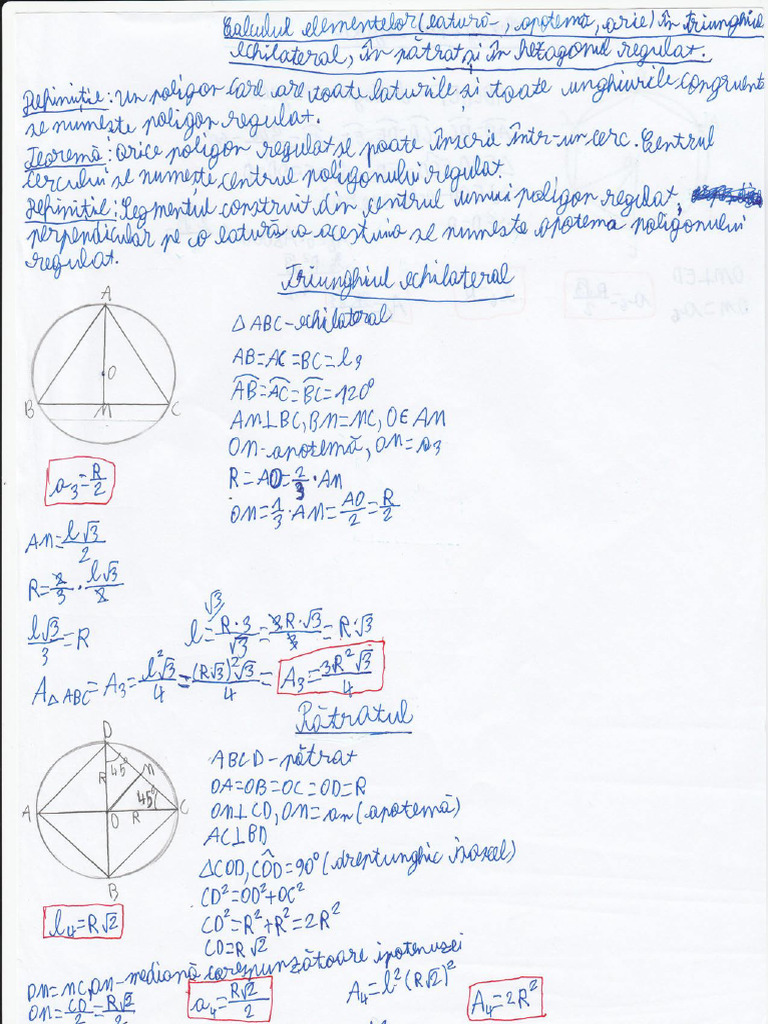 Calculul elementelor (latură, apotemă, arie) în triunghiul
echilateral, în pătrat și în hexagonul regulat.
Definiție: Un poligon care are toate laturile și toate unghiurile congruente
se numește poligon regulat.
Teoremă: Orice poligon regulat se poate înscrie într-un cerc. Centrul
cercului se numește centrul poligonului regulat.
Definiție: Segmentul construit din centrul unui poligon regulat,
perpendicular pe o latură a acestuia se numește apotema poligonului
regulat.
Triunghiul echilateral
A
O
B
M
C
△ABC-echilateral
AB=AC=BC=l₃
AB=AC=BC=120°
AM⊥BC, BM=MC, O∈AM
OM-apotemă, OM=a₃
R=AO=2/3·AM
OM=1/3·AM=AO/2=R/2
a₃=R/2
AM=l√3/2
R=2/3·l√3/2
l√3/3=R
√3
l=R·3/√3=3R·√3/3=R·√3
A△ABC=A₃=l²√3/4=(R√3)²√3/4=A₃=3R²√3/4
Pătratul
D
R
45°
M
45°
A
O
R
C
B
ABCD-pătrat
OA=OB=OC=OD=R
OM⊥CD, OM=an (apotemă)
AC⊥BD
△COD, COD=90° (dreptunghic isoscel)
CD²=OD²+OC²
CD²=R²+R²=2R²
CD=R√2
l₄=R√2
DM=MC, OM-mediană corespunzătoare ipotenuzei
OM=CD/2=R√2/2
a₄=R√2/2
A₄=l²(R√2)²
A₄=2R²